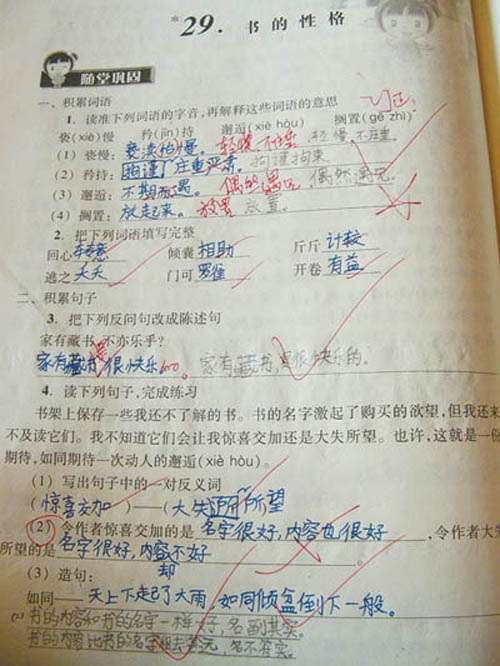 *29. 书的性格
随堂巩固
一、积累词语
1. 读准下列词语的字音,再解释这些词语的意思 订正:
亵(xiè)慢 矜(jīn)持 邂逅(xiè hòu) 搁置(gē zhì)
(1) 亵慢: 亵渎怡慢。 轻慢不庄重 轻慢,不庄重。
(2) 矜持: 拘谨 庄重严肃。 拘谨拘束。
(3) 邂逅: 不期而遇。 偶然遇见 偶然遇见。
(4) 搁置: 放起来。 放置 放置。
2. 把下列词语填写完整
回心转意 倾囊相助 斤斤计较
逃之夭夭 门可罗雀 开卷有益
二、积累句子
3. 把下列反问句改成陈述句
家有藏书,不亦乐乎?
家有藏书很快乐。 家有藏书,是很快乐的。
4. 读下列句子,完成练习
书架上保存一些我还不了解的书。书的名字激起了购买的欲望,但我还未
不及读它们。我不知道它们会让我惊喜交加还是大失所望。也许,这就是一份
期待,如同期待一次动人的邂逅(xiè hòu)。
(1) 写出句子中的一对反义词
(惊喜交加)——(大失所望
(2) 令作者惊喜交加的是 名字很好,内容也很好 ,令作者大失
所望的是 名字很好,内容却不好 。
(3) 造句:
如同——天上下起了大雨,如同倾盆倒下一般。
书的内容和书的名字一样好,名副其实。
书的内容比书的名字相去甚远,名不符实。